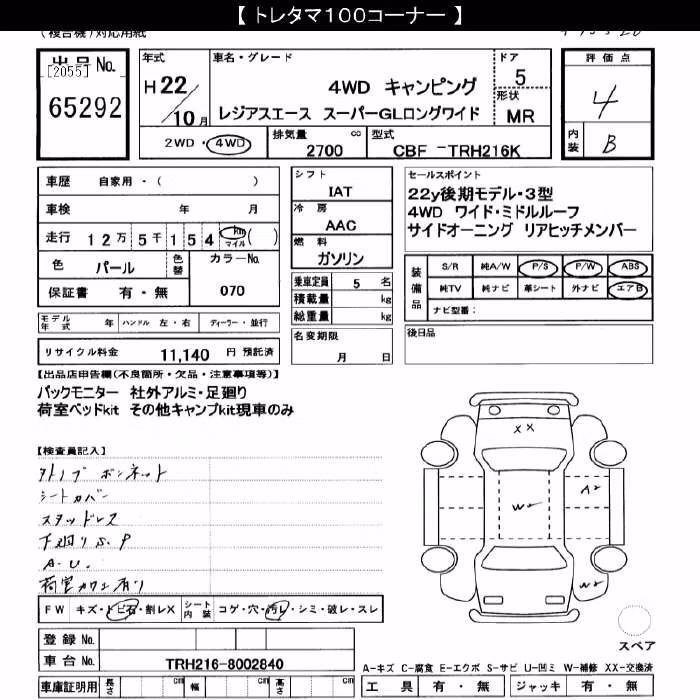 【 トレタマ100コーナー 】
(複合機)対応用紙
出品No.
[2055]
65292
年式
H 22/10月
車名・グレード
4WD キャンピング
レジアスエース スーパーGLロングワイド
ドア
5
形状
MR
2WD・4WD
排気量
cc
2700
型式
CBF -TRH216K
評価点
4
内装
B
車歴 自家用・( )
車検 年 月
走行 12万5千154 km マイル ( )
色 パール 色替 カラーNo.
保証書 有・無 070
モデル年式 年 ハンドル 左・右 ディーラー・並行
リサイクル料金 11,140 円 預託済
シフト
IAT
冷房
AAC
燃料
ガソリン
乗車定員 5 名
積載量 kg
総重量 kg
名変期限
月 日
セールスポイント
22y後期モデル・3型
4WD ワイド・ミドルルーフ
サイドオーニング リアヒッチメンバー
装備品
S/R 純A/W P/S P/W ABS
純TV 純ナビ 革シート 外ナビ エアB
ナビ型番:
後日品
【出品店申告欄(不良箇所・欠品・注意事項等)】
バックモニター 社外アルミ・足廻り
荷室ベッドkit その他キャンプkit現車のみ
【検査員記入】
ボンネット
シートカバー
スタッドレス
下廻りS.P
A.U.
有り
FW キズ・トビ石・割レX シート内装 コゲ・穴・汚レ・シミ・破レ・スレ
登録No.
車台No. TRH216-8002840
車庫証明用 長さ cm 幅 cm 高さ cm
XX
A2
W2
W2
スペア
A-キズ C-腐食 E-エクボ S-サビ U-凹ミ W-補修 XX-交換済
工具 有・無 ジャッキ 有・無